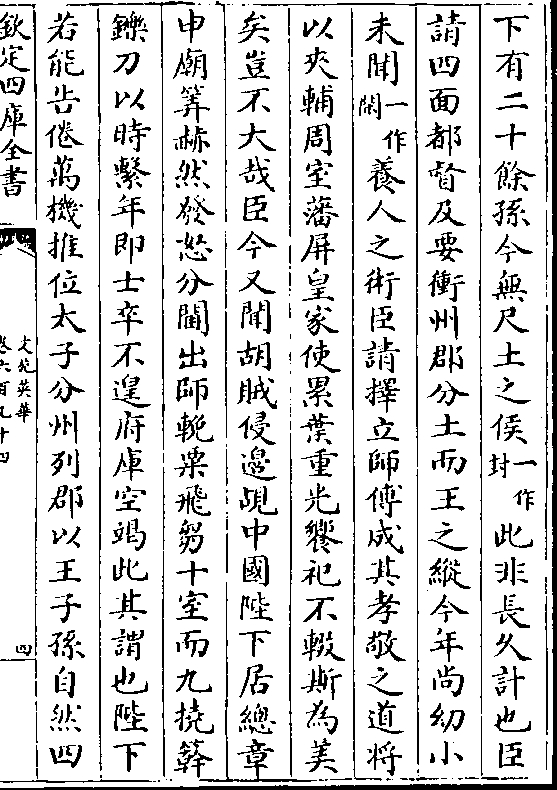 下有二十餘孫今無尺土之侯一作封此非長久計也臣
請四面都督及要衝州郡分土而王之縱今年尚幼小
未聞一作閑養人之術臣請擇立師傅成其孝敬之道將
以夾輔周室藩屏皇家使累葉重光饗祀不輟斯為美
矣豈不大哉臣今又聞胡賊侵邊覘中國陛下居總章
申廟筭赫然發怒分閫出師輓粟飛芻十室而九撓榦
鑠刀以時繫年即士卒不遑府庫空竭此其謂也陛下
若能告倦萬機推位太子分州列郡以王子孫自然四
欽定四庫全書
文苑英華
卷六百九十四
四